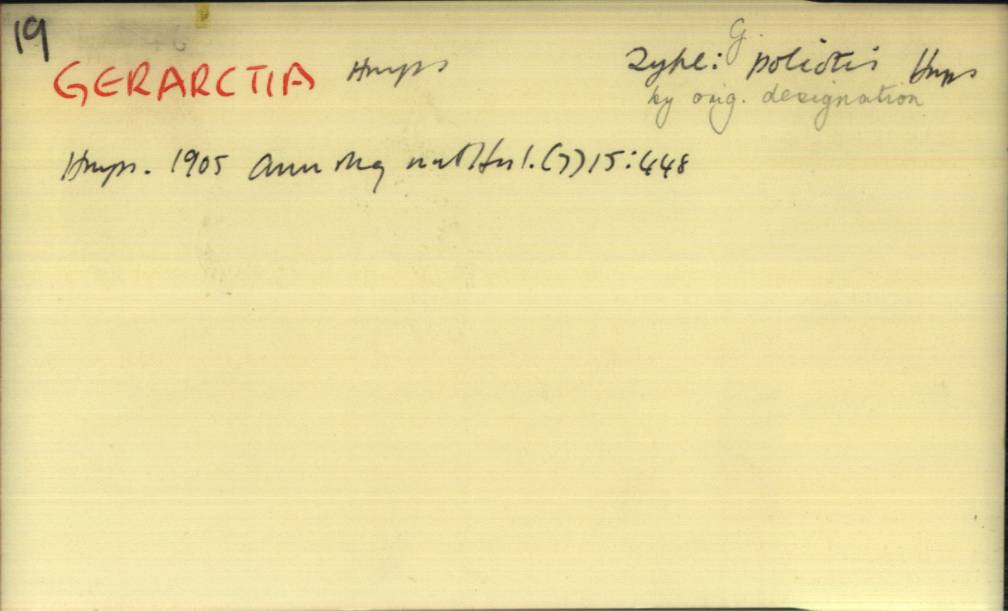 19
GERARCTIA Hmps Type: G. poliotis Hmps
by orig. designation
Hmps. 1905 Ann Mag nat Hist. (7) 15:448